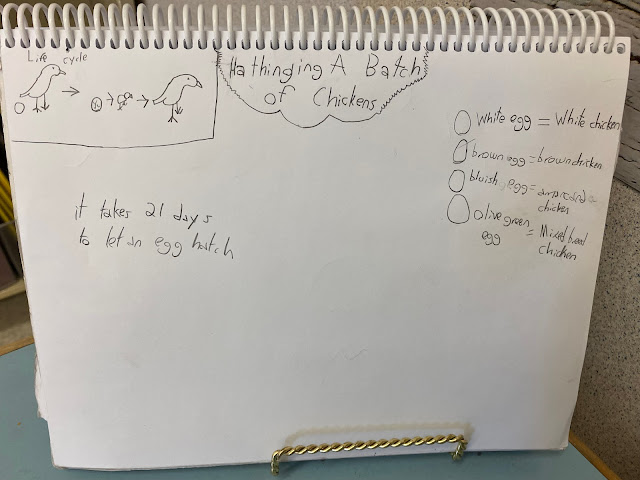 Life cycle
Hathinging A Batch
of Chickens
White egg = White chicken
brown egg = brown chicken
bluish egg =
chicken
olive green = Mixed bread
egg
chicken
it takes 21 days
to let an egg hatch